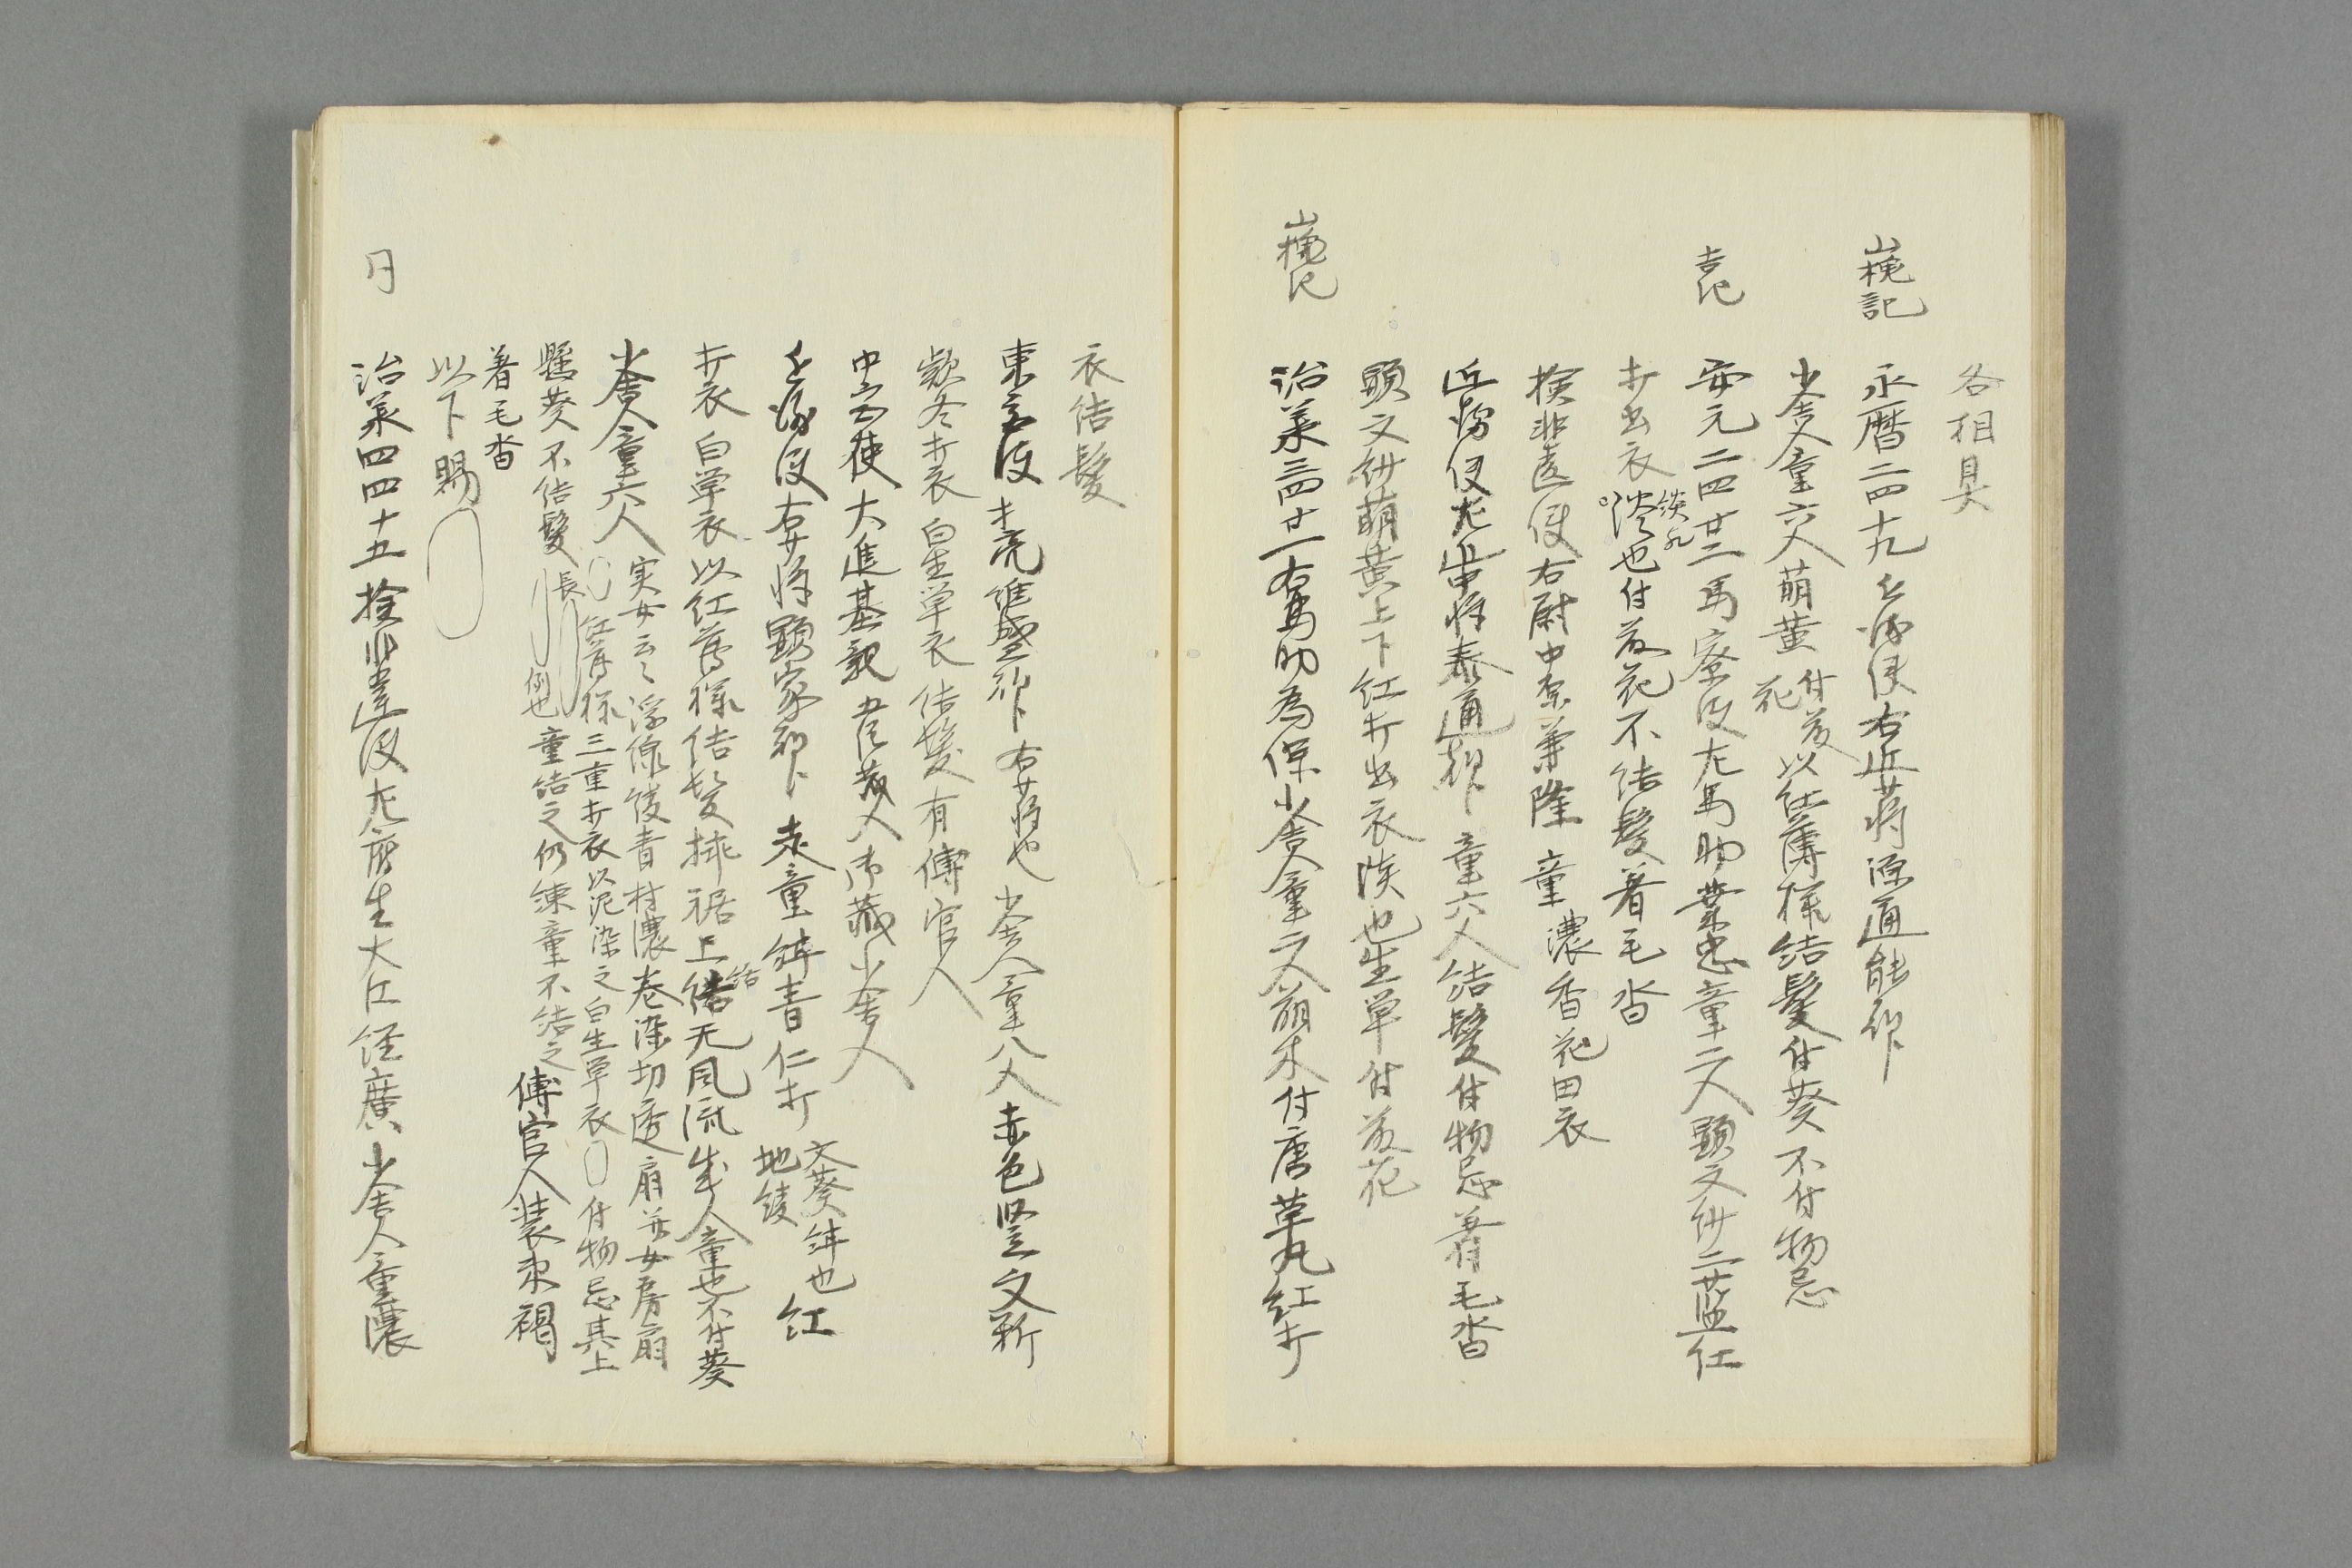 各相具
山槐記
永暦二四十九 近衛使右近少将源通能朝臣
小舎人童六人萌黄 付藤花 以紅薄様結髪付葵不付物忌
吉記
安元二四廿二 馬寮使左馬助業忠童二人顕文紗二藍紅
打出衣 淡也付藤花不結髪着毛沓
検非違使右尉中原兼隆 童 濃香花田衣
近衛使左近中将泰通朝臣 童六人結髪付物忌着毛沓
顕文紗萌黄上下紅打出衣 也生単付藤花
山槐記
治承三四廿一右馬助為保小舎人童二人萌木付唐草丸紅打
衣結髪
東宮使 亮維盛朝臣右少将也 小舎人童八人赤色竪文
款冬打衣白生単衣結髪有傅官人
中宮使大進基親 蔵人 小舎人
近衛使右少将顕家朝臣 童 青仁打 文葵 也 地綾 紅
打衣白単衣以紅薄様結髪 裾上結无風流 人童也不付葵
小舎人童六人 実女云々浮線綾青村濃巻染切透扇并女房扇
紅薄様三重打衣以泥染之白生単衣 付物忌其上
懸葵不結髪 長 例也 童結之仍 童不結之 傅官人装束褐
着毛沓
以下賜
同
治承四四十五検非違使左 生大江経廣小舎人童濃